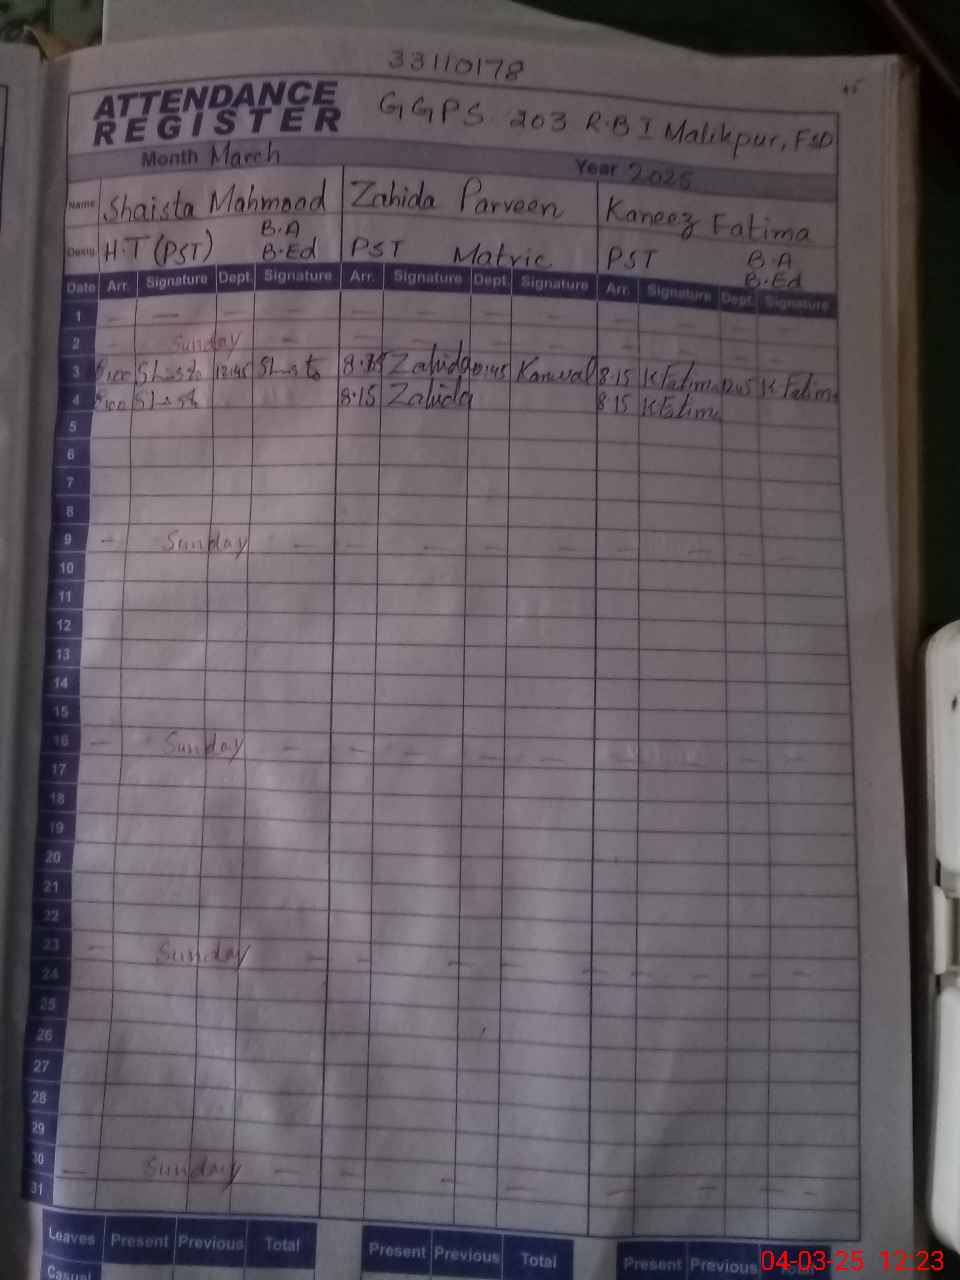 33110178
ATTENDANCE REGISTER
GGPS 203 R.B I Malikpur, FSD
Month March Year 2025
Name Shaista Mahmood Zahida Parveen Kaneez Fatima
Desig. H.T (PST) B.A B.Ed PST Matric PST B.A B.Ed
Date Arr. Signature Dept. Signature Arr. Signature Dept. Signature Arr. Signature Dept. Signature
1 — — — — — — — — — —
2 — Sunday — — — — — — — — —
3 Zahida Kanwal 8.15 K Fatima K Fatima
4 8.15 Zahida 8.15 K Fatima
5
6
7
8
9 — Sunday — — — — — — — — —
10
11
12
13
14
15
16 — Sunday — — — — — — — —
17
18
19
20
21
22
23 — Sunday — — — — — — — — —
24
25
26
27
28
29
30 — Sunday — — — — — — —
31
Leaves Present Previous Total Present Previous Total Present Previous Total
Casual
04-03-25 12:23